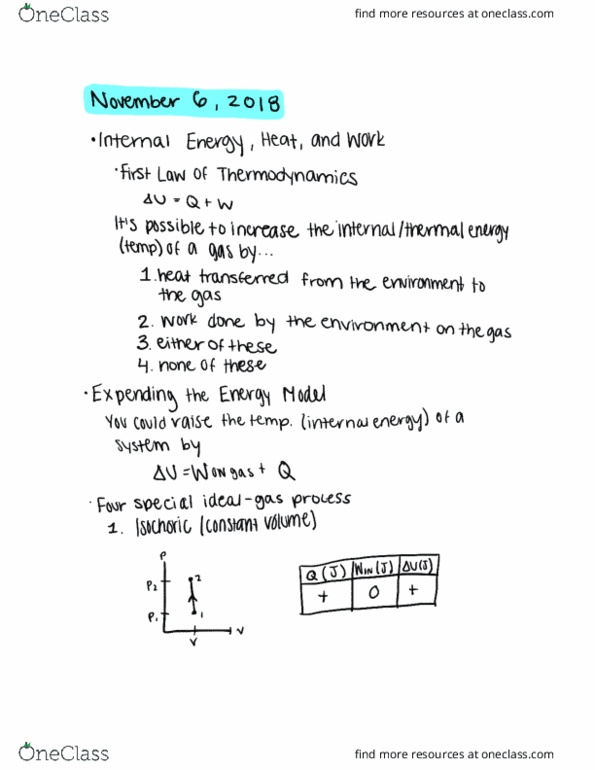 OneClass
find more resources at oneclass.com
November 6, 2018
•Internal Energy, Heat, and Work
•First Law of Thermodynamics
ΔU = Q + W
It's possible to increase the internal/thermal energy
(temp) of a gas by...
1. heat transferred from the environment to
the gas
2. work done by the environment on the gas
3. either of these
4. none of these
•Expending the Energy Model
You could raise the temp. (internal energy) of a
system by
ΔU = Won gas + Q
•Four special ideal-gas process
1. Isochoric (constant volume)
P
P2
2
P1
1
V
V
Q (J) WIN (J) ΔU(J)
+ 0 +
OneClass
find more resources at oneclass.com